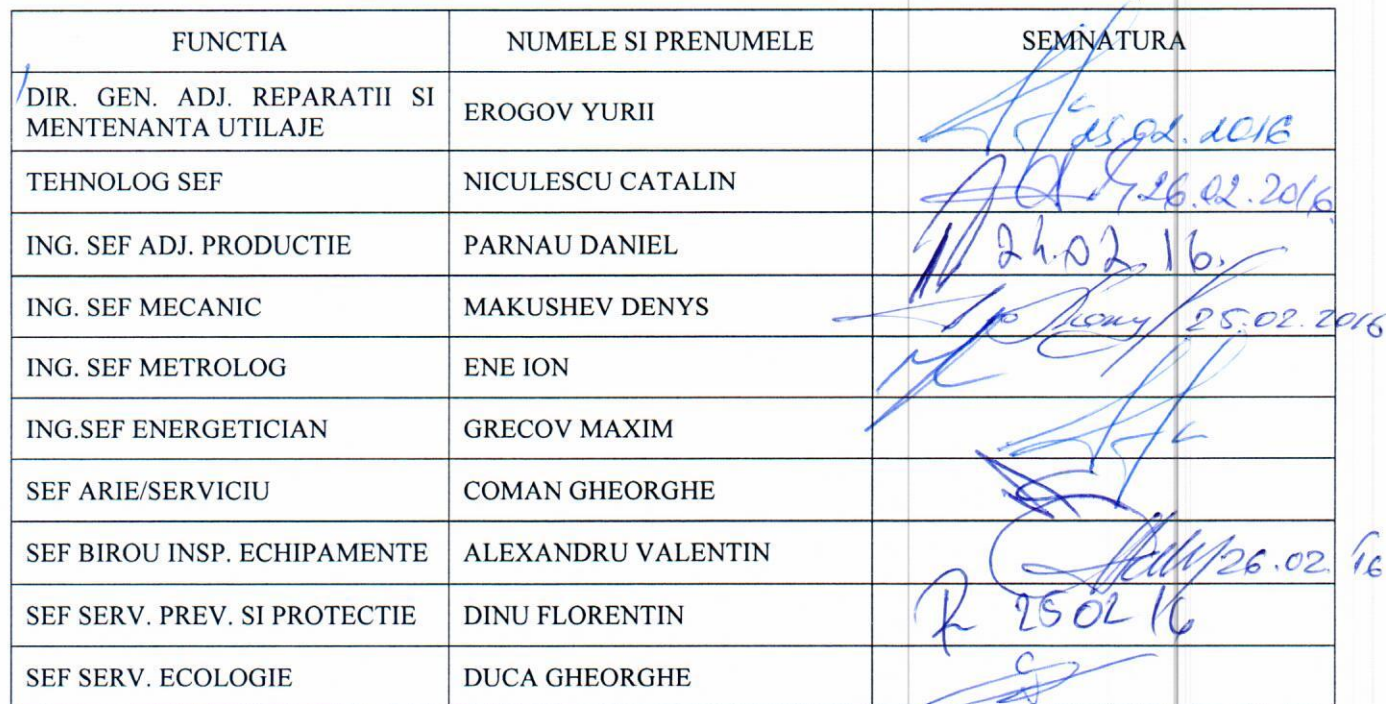 FUNCTIA NUMELE SI PRENUMELE SEMNATURA
DIR. GEN. ADJ. REPARATII SI
MENTENANTA UTILAJE EROGOV YURII 25.02.2016
TEHNOLOG SEF NICULESCU CATALIN 26.02.2016
ING. SEF ADJ. PRODUCTIE PARNAU DANIEL 24.02.16.
ING. SEF MECANIC MAKUSHEV DENYS 25.02.2016
ING. SEF METROLOG ENE ION
ING.SEF ENERGETICIAN GRECOV MAXIM
SEF ARIE/SERVICIU COMAN GHEORGHE
SEF BIROU INSP. ECHIPAMENTE ALEXANDRU VALENTIN 26.02.16
SEF SERV. PREV. SI PROTECTIE DINU FLORENTIN 25 02 16
SEF SERV. ECOLOGIE DUCA GHEORGHE